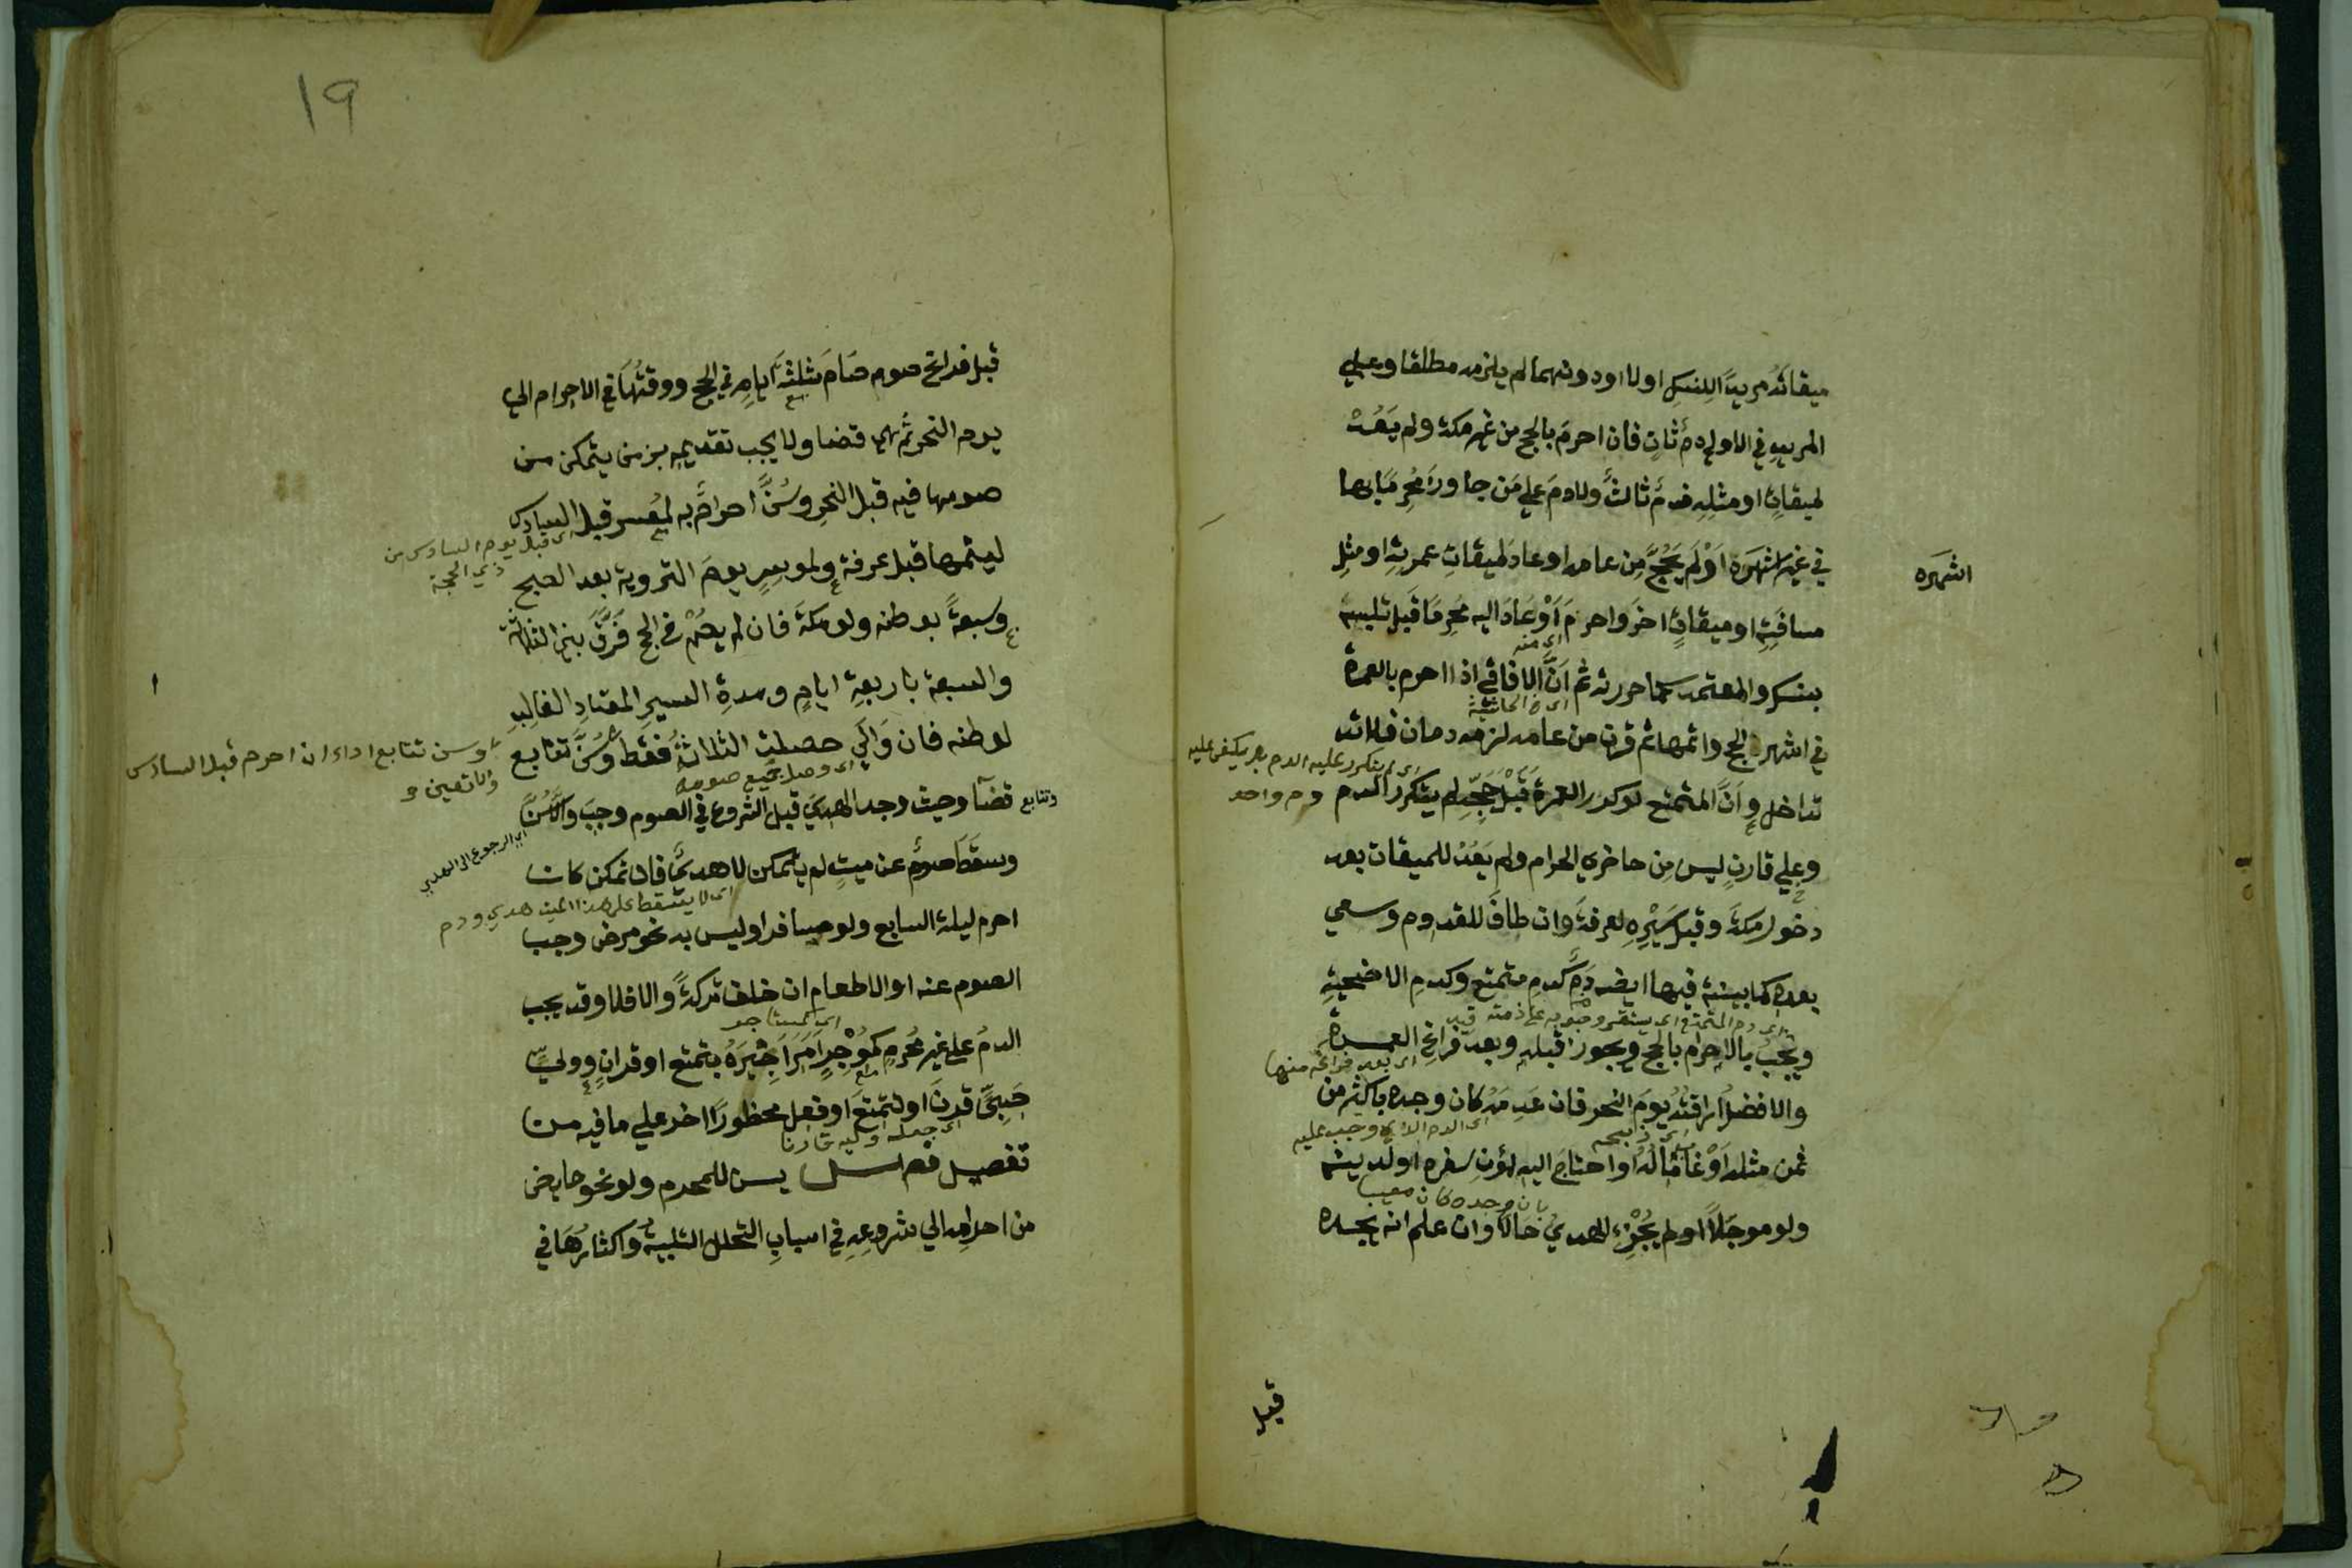 ميقاته مريدا للنسك اولا اودونهما لم يلزمه مطلقا وعلي
المريد في الاولي دم ثان فان احرم بالحج من غير مكة ولم يعد
لميقات او مثله فدم ثالث ولا دم علي من جاوز محرما بها
في غير اشهره او لم يحج من عامه او عاد لميقات عمرته او مثل
اشهره
مسافته او ميقات اخر واحرم او عاد اليه محرما قبل تلبسه
بنسك والمعتمد كما حررته ثم ان الافاقي اذا احرم بالعمرة
اي منه
اي في الحاشية
في اشهر الحج واتمها ثم قرن من عامه لزمه دمان فلا
تداخل وان المتمتع لو كرر العمرة قبل حجه لم يتكرر الدم
اي لم يتكرر عليه الدم بل يكفي عليه
دم واحد
وعلي قارن ليس من حاضري الحرام ولم يعد للميقات بعد
دخول مكة وقبل سيره لعرفة وان طاف للقدوم وسعي
بعده كما بينته فيها ايضا دم كدم متمتع وكدم الاضحية
اي دم المتمتع اي يستقر وجوبه علي ذمته
ويجب بالاحرام بالحج ويجوز قبله وبعد فراغ العمرة
اي بعد فراغه منها
والافضل اراقته يوم النحر فان عدمه كان وجده باكثر من
اي الدم الذي وجب عليه
ثمن مثله او غاب ماله او احتاج اليه لمؤن سفره اولدينه
بان وجده كان معيبا
ولو موجلا او لم يجزء الهدي حالا وان علم انه يجده
قبل
١٩
قبل فراغ صومه صام ثلثة ايام في الحج ووقتها في الاحرام الي
يوم النحر ثم هي قضا ولا يجب تقديمه بزمن يتمكن من
صومها فيه قبل النحر وسن احرام به لمعسر قبل السادس
اي قبل يوم السادس من
ذي الحجة
ليتمها قبل عرفة ولموسر يوم التروية بعد الصبح
وسبعة بوطنه ولو مكة فان لم يصم في الحج فرق بين الثلاثة
والسبعة باربعة ايام ومدة السير المعتاد الغالب
لوطنه فان والي حصلت الثلاثة فقط وسن تتابع
وسن تتابع اداء ان احرم قبل السادس
والا تعين
اي وصل جميع صومه
وتتابع
قضآ وحيث وجد الهدي قبل الشروع في الصوم وجب والا سن
اي الرجوع الي الهدي
وسقط صوم عن ميت لم يتمكن لا هدي فان تمكن كان
اي لا يسقط علي هذا الميت هدي ودم
احرم ليلة السابع ولو مسافرا وليس به نحو مرض وجب
الصوم عنه او الاطعام ان خلف تركة والا فلا وقد يجب
الدم علي غير محرم كموجر امر اجيره بتمتع او قران وولي
صبي قرن او تمتع او فعل محظورا اخر علي ما فيه من
اي جعله وليه قارنا
تفصيل فصل يسن للمحرم ولو نحو حايض
من احرامه الي شروعه في اسباب التحلل التلبية واكثارها في